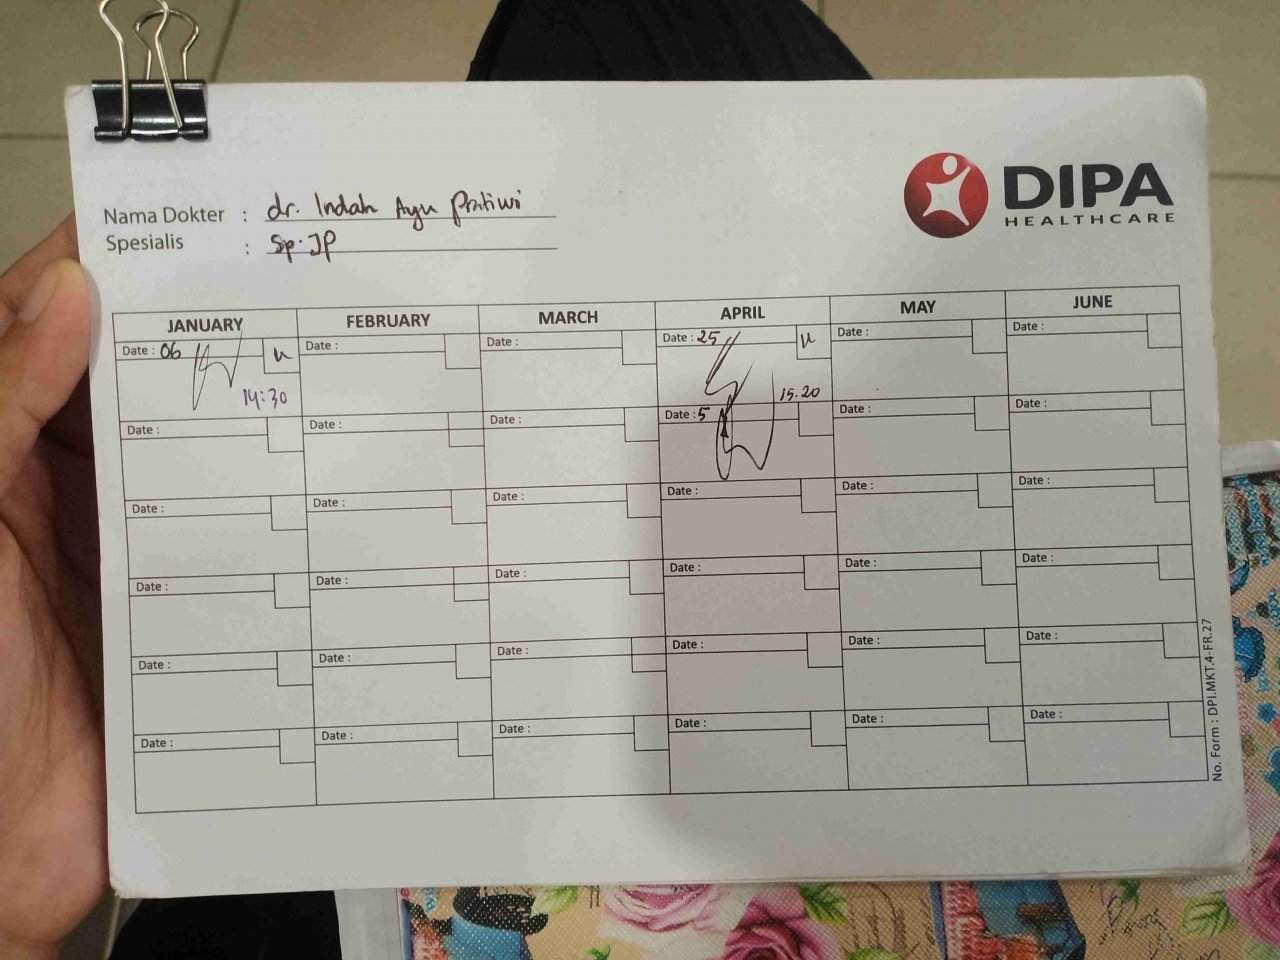 DIPA
HEALTHCARE
Nama Dokter : dr. Indah Ayu Pratiwi
Spesialis : Sp.JP
JANUARY FEBRUARY MARCH APRIL MAY JUNE
Date : 06 Date : Date : Date : 25 Date : Date :
14:30 15.20
Date : Date : Date : Date : 5 Date : Date :
Date : Date : Date : Date : Date : Date :
Date : Date : Date : Date : Date : Date :
Date : Date : Date : Date : Date : Date :
Date : Date : Date : Date : Date : Date :
No. Form : DPI.MKT.4-FR.27